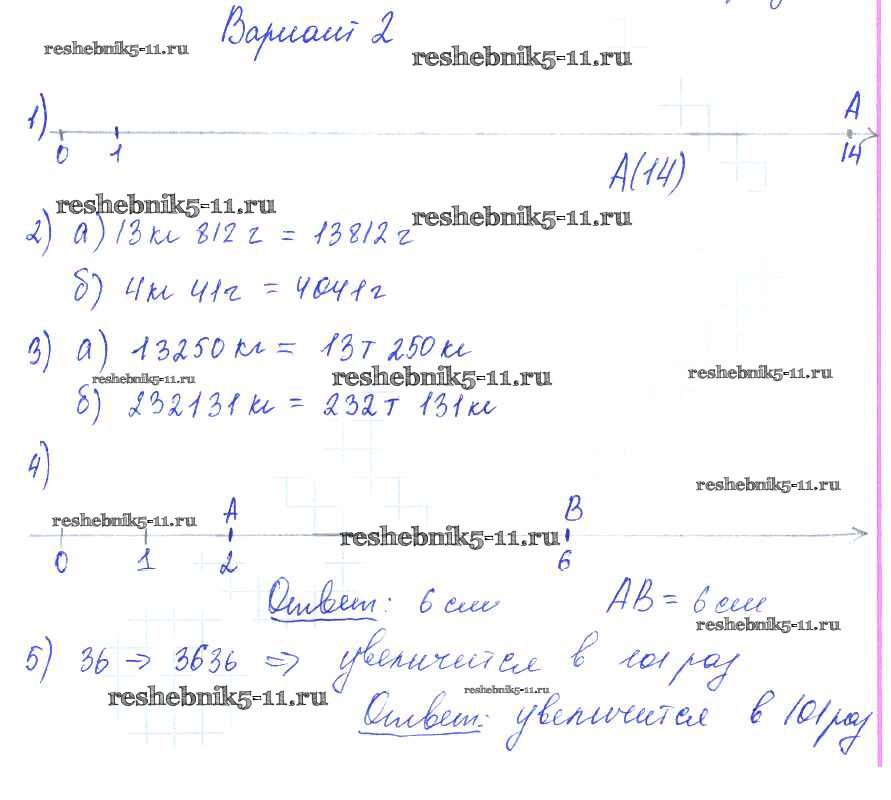 Вариант 2
reshebnik5-11.ru
reshebnik5-11.ru
1)
A
0 1 14
A(14)
reshebnik5-11.ru
reshebnik5-11.ru
2) а) 13кг 812г = 13812г
б) 4кг 41г = 4041г
3) а) 13250кг = 13т 250кг
reshebnik5-11.ru
reshebnik5-11.ru
reshebnik5-11.ru
б) 232131кг = 232т 131кг
4)
reshebnik5-11.ru
A B
reshebnik5-11.ru
reshebnik5-11.ru
0 1 2 6
Ответ: 6см AB = 6см
reshebnik5-11.ru
5) 36 → 3636 ⇒ увеличится в 101 раз
reshebnik5-11.ru
reshebnik5-11.ru
Ответ: увеличится в 101 раз